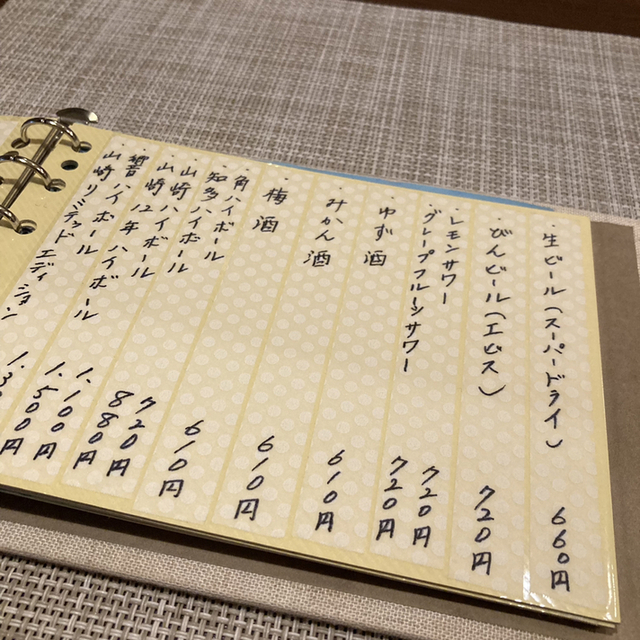 ・生ビール(スーパードライ) 660円
・びんビール(エビス) 720円
・レモンサワー 720円
・グレープフルーツサワー 720円
・ゆず酒 610円
・みかん酒 610円
・梅酒 610円
・角ハイボール 720円
・知多ハイボール 880円
・山崎ハイボール 1.100円
・山崎12年ハイボール 1.500円
・響ハイボール
・山崎リミテッドエディション